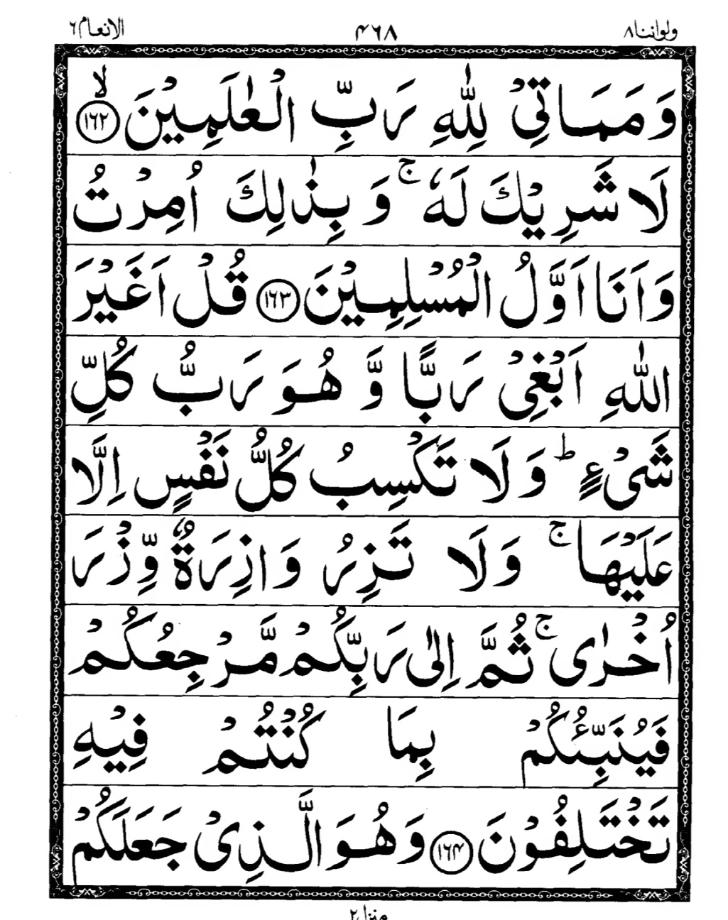 ولواننا۸ ۴۶۸ الانعام۶
وَمَمَاتِیْ لِلّٰهِ رَبِّ الْعٰلَمِیْنَ ۙ﴿۱۶۲﴾
لَا شَرِیْكَ لَهٗ ۚ وَ بِذٰلِكَ اُمِرْتُ
وَاَنَا اَوَّلُ الْمُسْلِمِیْنَ ﴿۱۶۳﴾ قُلْ اَغَیْرَ
اللّٰهِ اَبْغِیْ رَبًّا وَّ هُوَ رَبُّ كُلِّ
شَیْءٍ ؕ وَ لَا تَكْسِبُ كُلُّ نَفْسٍ اِلَّا
عَلَیْهَا ۚ وَ لَا تَزِرُ وَازِرَةٌ وِّزْرَ
اُخْرٰی ۚ ثُمَّ اِلٰی رَبِّكُمْ مَّرْجِعُكُمْ
فَیُنَبِّئُكُمْ بِمَا كُنْتُمْ فِیْهِ
تَخْتَلِفُوْنَ ﴿۱۶۴﴾ وَهُوَ الَّذِیْ جَعَلَكُمْ
منزل۲